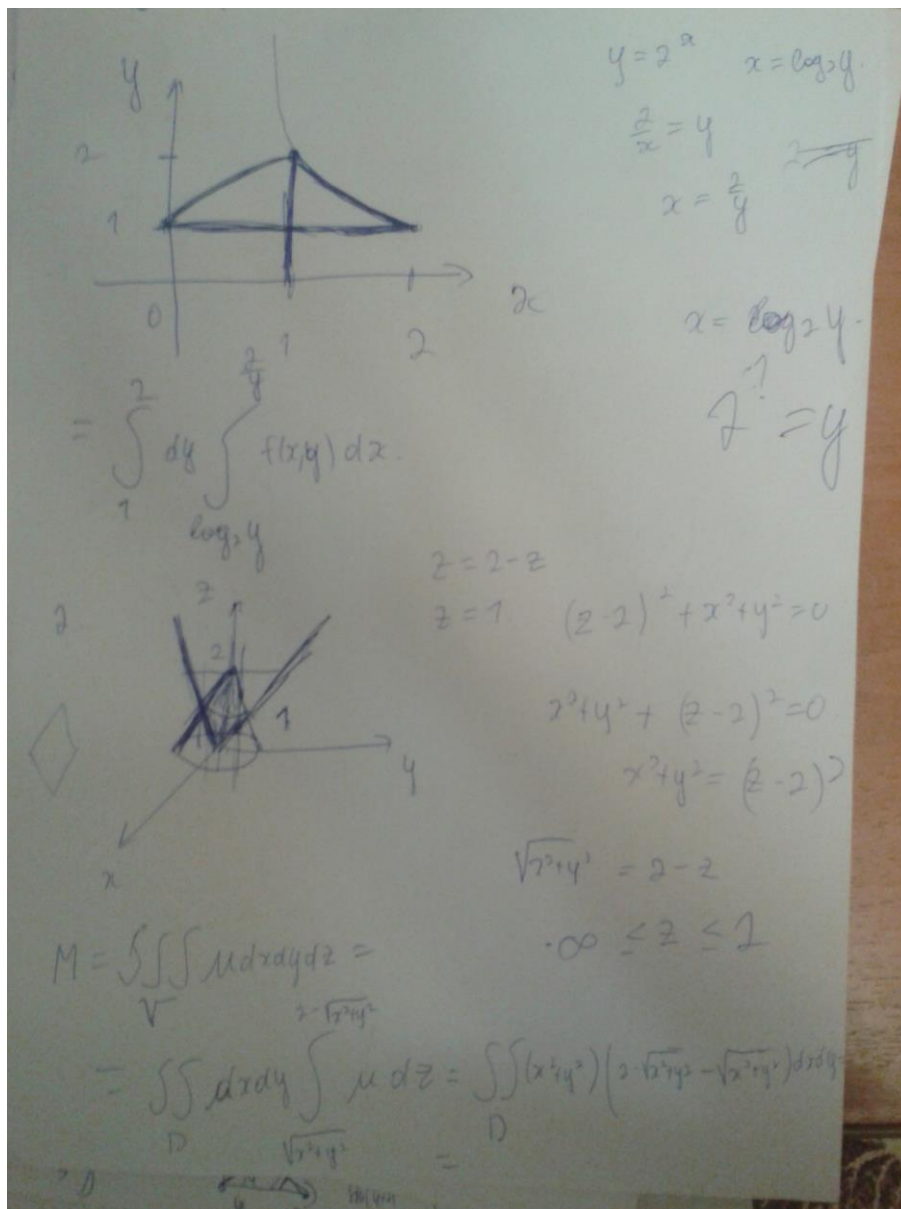 y
2
1
0
1
2
x
y = 2^x x = log₂y.
2/x = y
x = 2/y
x = log₂y.
2^? = y
= ∫₁² dy ∫_{log₂y}^{2/y} f(x,y) dx.
2.
z
2
1
y
x
z = 2-z
z = 1. (z-2)² + x²+y² = 0
x²+y² + (z-2)² = 0
x²+y² = (z-2)²
√x²+y² = 2-z
-∞ ≤ z ≤ 2
M = ∫∫∫_V μ dxdydz =
= ∫∫_D dxdy ∫_{√x²+y²}^{2-√x²+y²} μ dz = ∫∫_D (x²+y²)(2-√x²+y² - √x²+y²) dxdy
=